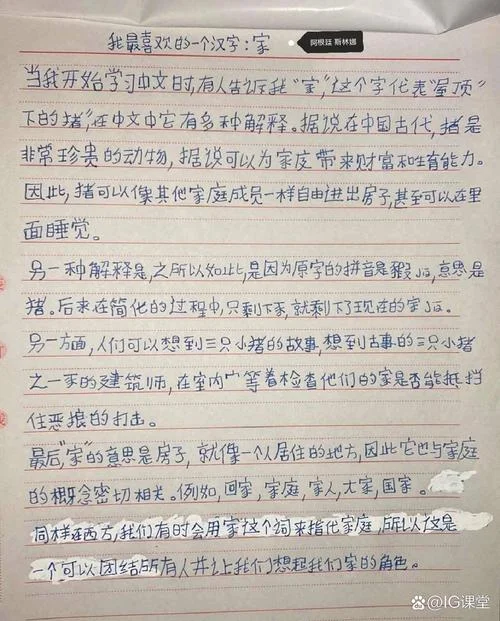 我最喜欢的一个汉字:家
阿根廷 斯林娜
当我开始学习中文时,有人告诉我“家”,这个字代表“屋顶”
下的猪”,在中文中它有多种解释。据说在中国古代,猪是
非常珍贵的动物,据说可以为家庭带来财富和生育能力。
因此,猪可以像其他家庭成员一样自由进出房子,甚至可以在里
面睡觉。
另一种解释是,之所以如此,是因为原字的拼音是豭jiā,意思是
猪。后来在简化的过程中,只剩下豕,就剩下了现在的家jiā。
另一方面,人们可以想到三只小猪的故事,想到古事的三只小猪
之一豕的建筑师,在室内宀等着检查他们的家是否能抵挡
住恶狼的打击。
最后“家”的意思是房子,就像一个人居住的地方,因此它也与家庭
的概念密切相关。例如,回家,家庭,家人,大家,国家。
同样在西方,我们有时会用家这个词来指代家庭,所以这是
一个可以团结所有人并让我们想起我们家的角色。
@IG课堂